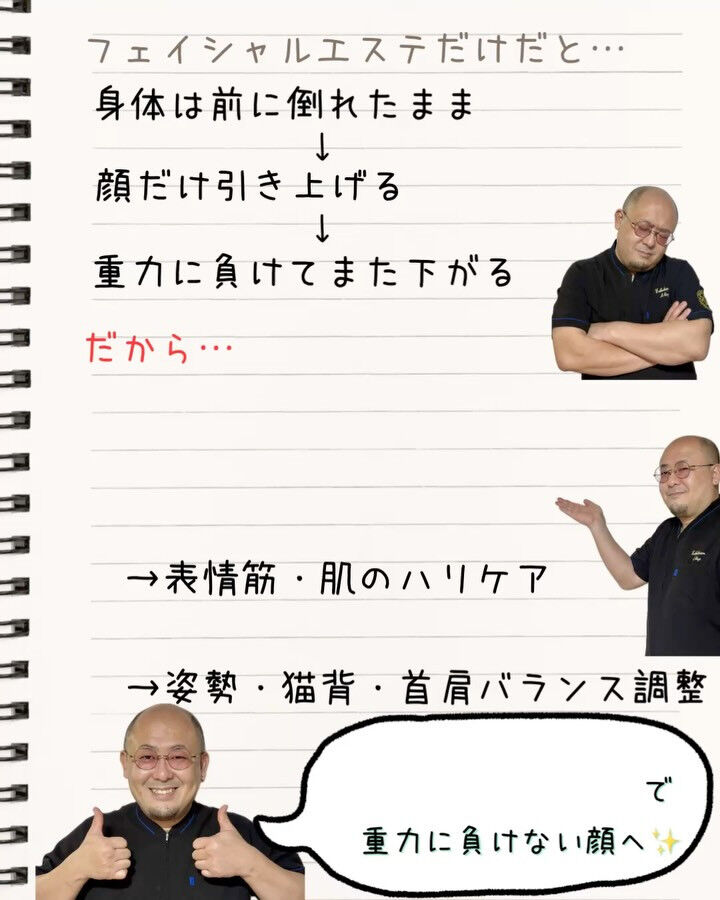 フェイシャルエステだけだと…
身体は前に倒れたまま
↓
顔だけ引き上げる
↓
重力に負けてまた下がる
だから…
→表情筋・肌のハリケア
→姿勢・猫背・首肩バランス調整
で
重力に負けない顔へ✨